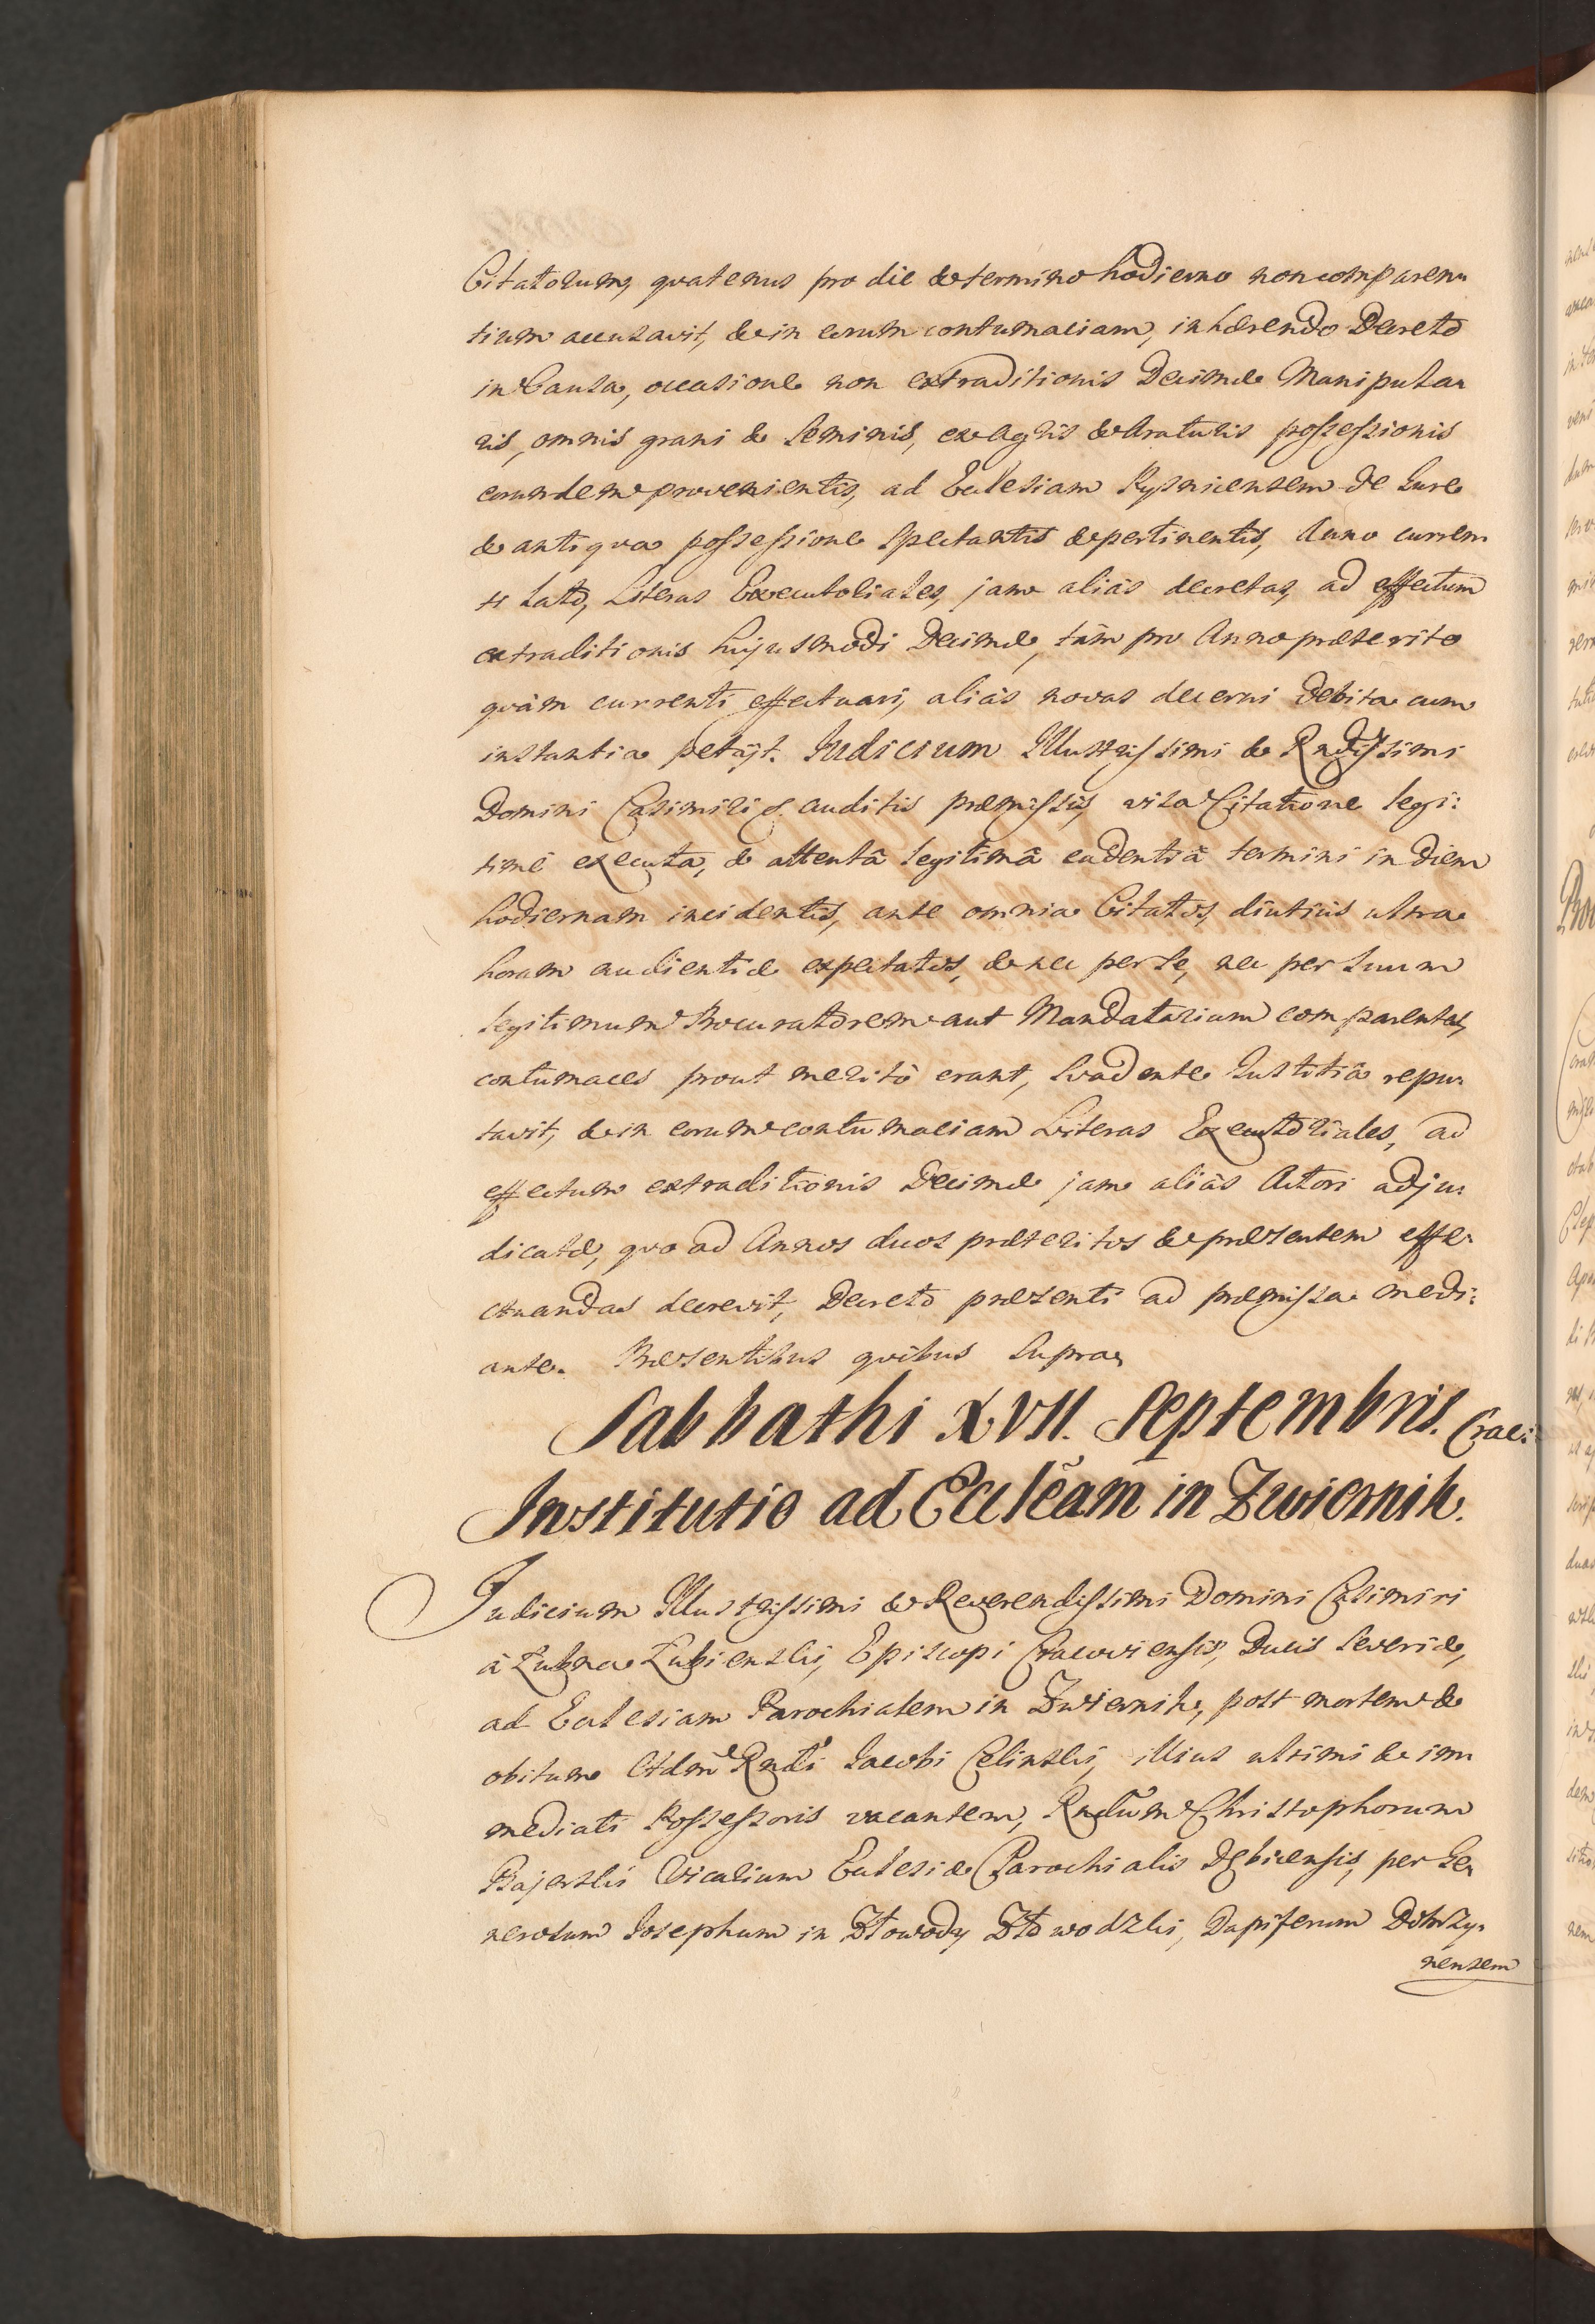 Citatorum, quatenus pro die & termino hodierno non comparen-
tium accusavit, & in eorum contumaciam, inhærendo Decreto
in Causa, occasione non extraditionis Decimæ Manipula-
ris, omnis grani & seminis, ex agris & araturis possessionis
eorundem provenientis, ad Ecclesiam Rypnicensem de Jure
& antiqua possessione spectantis & pertinentis, Anno curren-
ti lato, Literas Executoriales, jam aliàs decretas, ad effectum
extraditionis hujusmodi Decimæ, tàm pro Anno præterito
quàm currenti effectuari, aliàs novas decerni debita cum
instantia petijt. Judicium Illustrissimi & Rndissimi
Domini Casimiri &. auditis præmissis, visa Citatione legi:
timè executa, & attentâ legitimâ cadentiâ termini in diem
hodiernam incidentis, ante omnia Citatos, diutiùs ultra
horam audientiæ expectatos, & nec per se, nec per suum
legitimum Procuratorem aut Mandatarium comparentes,
contumaces prout meritò erant, svadente Justitiâ repu-
tavit, & in eorum contumaciam Literas Executoriales, ad
effectum extraditionis Decimæ jam aliàs Actori adju-
dicatæ, quo ad Annos duos præteritos & præsentem effe-
ctuandas decrevit, Decreto præsenti ad præmissa medi:
ante. Præsentibus quibus supra,
Sabbathi XVII. Septembris. Crac:
Institutio ad Eccleãm in Zwiernik.
Judicium Illustrissimi & Reverendissimi Domini Casimiri
à Łubna Łubienski, Episcopi Cracoviensis, Ducis Severiæ,
ad Ecclesiam Parochialem in Zwiernik, post mortem &
obitum Rndi Jacobi Celinski, illius ultimi & im-
mediati Possessoris vacantem, Rndum Christophorum
Bajerski Vicarium Ecclesiæ Parochialis Dębicensis, per Ge-
nerosum Josephum in Złowody Złowodzki, Dapiferum Dobrzy-
nensem